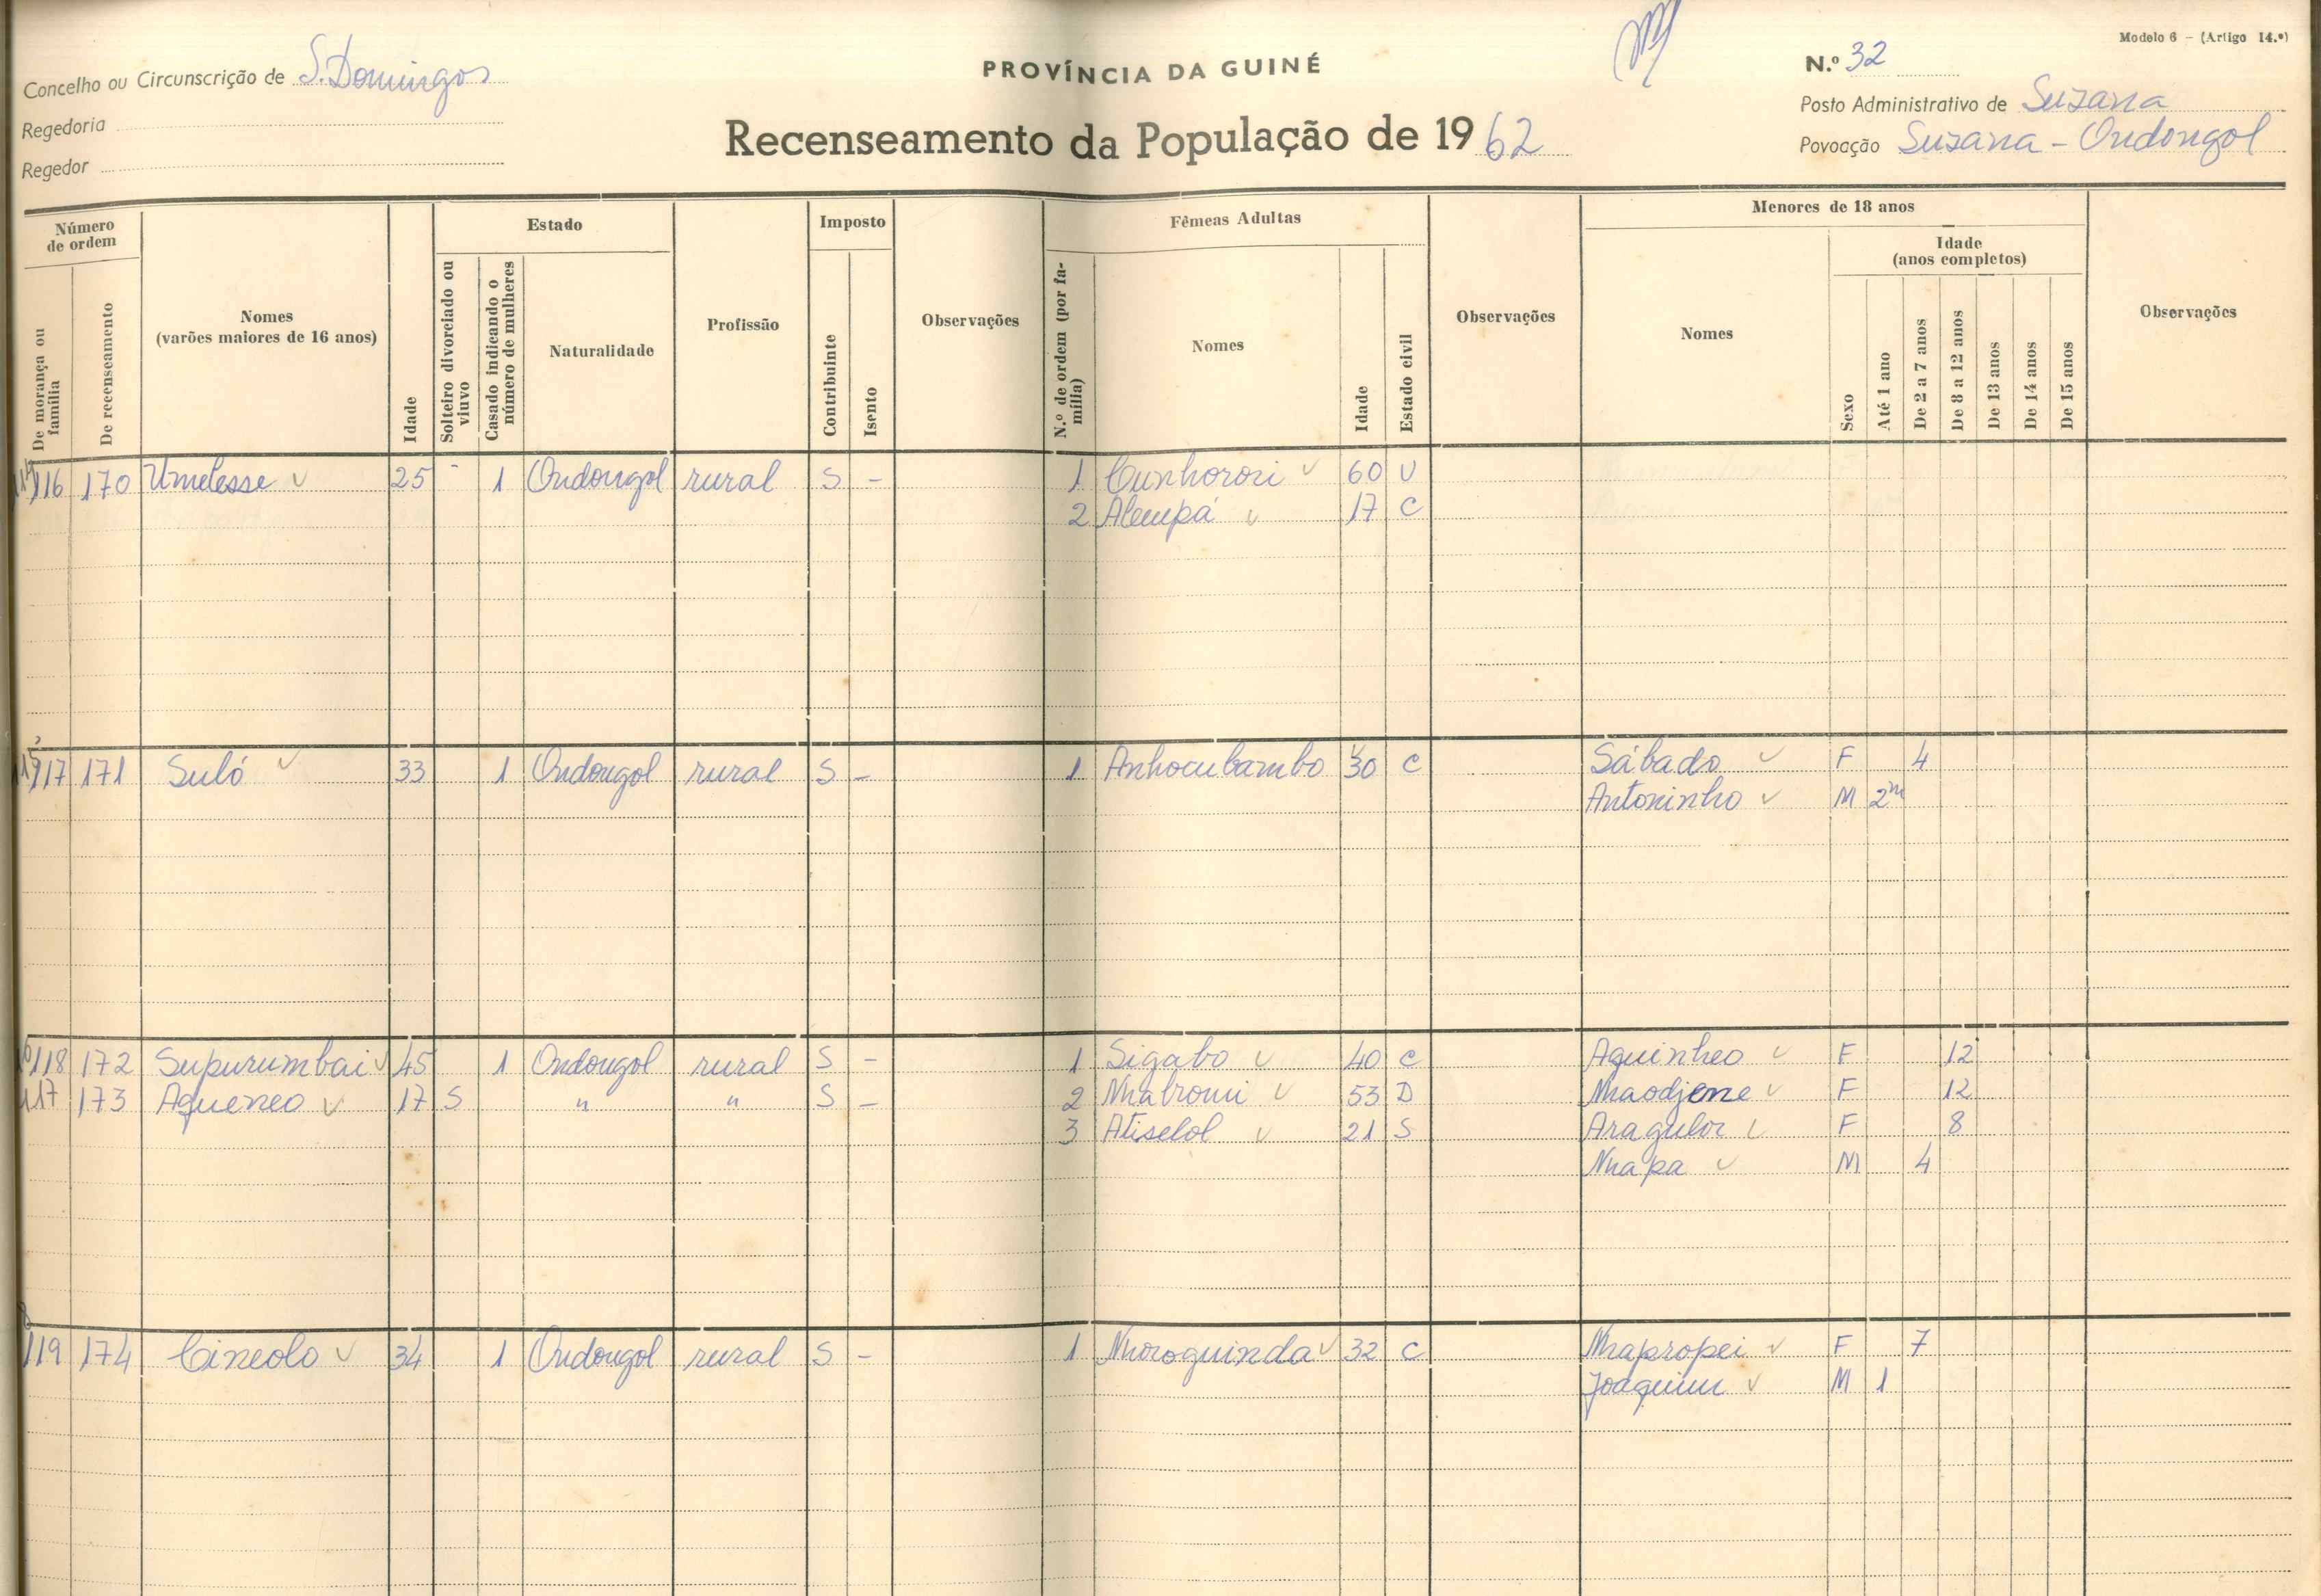 Modelo 6 — (Artigo 14.º)
PROVÍNCIA DA GUINÉ
Concelho ou Circunscrição de S. Domingos
Regedoria
Regedor
Recenseamento da População de 1962
N.º 32
Posto Administrativo de Suzana
Povoação Suzana - Ondongol
Número de ordem
De morança ou família
De recenseamento
Nomes
(varões maiores de 16 anos)
Idade
Estado
Solteiro divorciado ou viuvo
Casado indicando o número de mulheres
Naturalidade
Profissão
Imposto
Contribuinte
Isento
Observações
Fêmeas Adultas
N.º de ordem (por família)
Nomes
Idade
Estado civil
Observações
Menores de 18 anos
Nomes
Sexo
Idade
(anos completos)
Até 1 ano
De 2 a 7 anos
De 8 a 12 anos
De 13 anos
De 14 anos
De 15 anos
Observações
116 170 Umelesse 25 - 1 Ondongol rural S - 1 Cunhorori 60 V
2 Alempá 17 C
117 171 Suló 33 1 Ondongol rural S - 1 Anhocubambo 30 C Sábado F 4
Antoninho M 2m
118 172 Supurumbai 45 1 Ondongol rural S - 1 Sigabo 40 C Aquinheo F 12
117 173 Aqueneo 17 S " " S - 2 Nhabromi 53 D Nhaodjene F 12
3 Atiselol 21 S Aragulor F 8
Nhapa M 4
119 174 Cineolo 34 1 Ondongol rural S - 1 Nhoroguinda 32 C Nhapropei F 7
Joaquim M 1